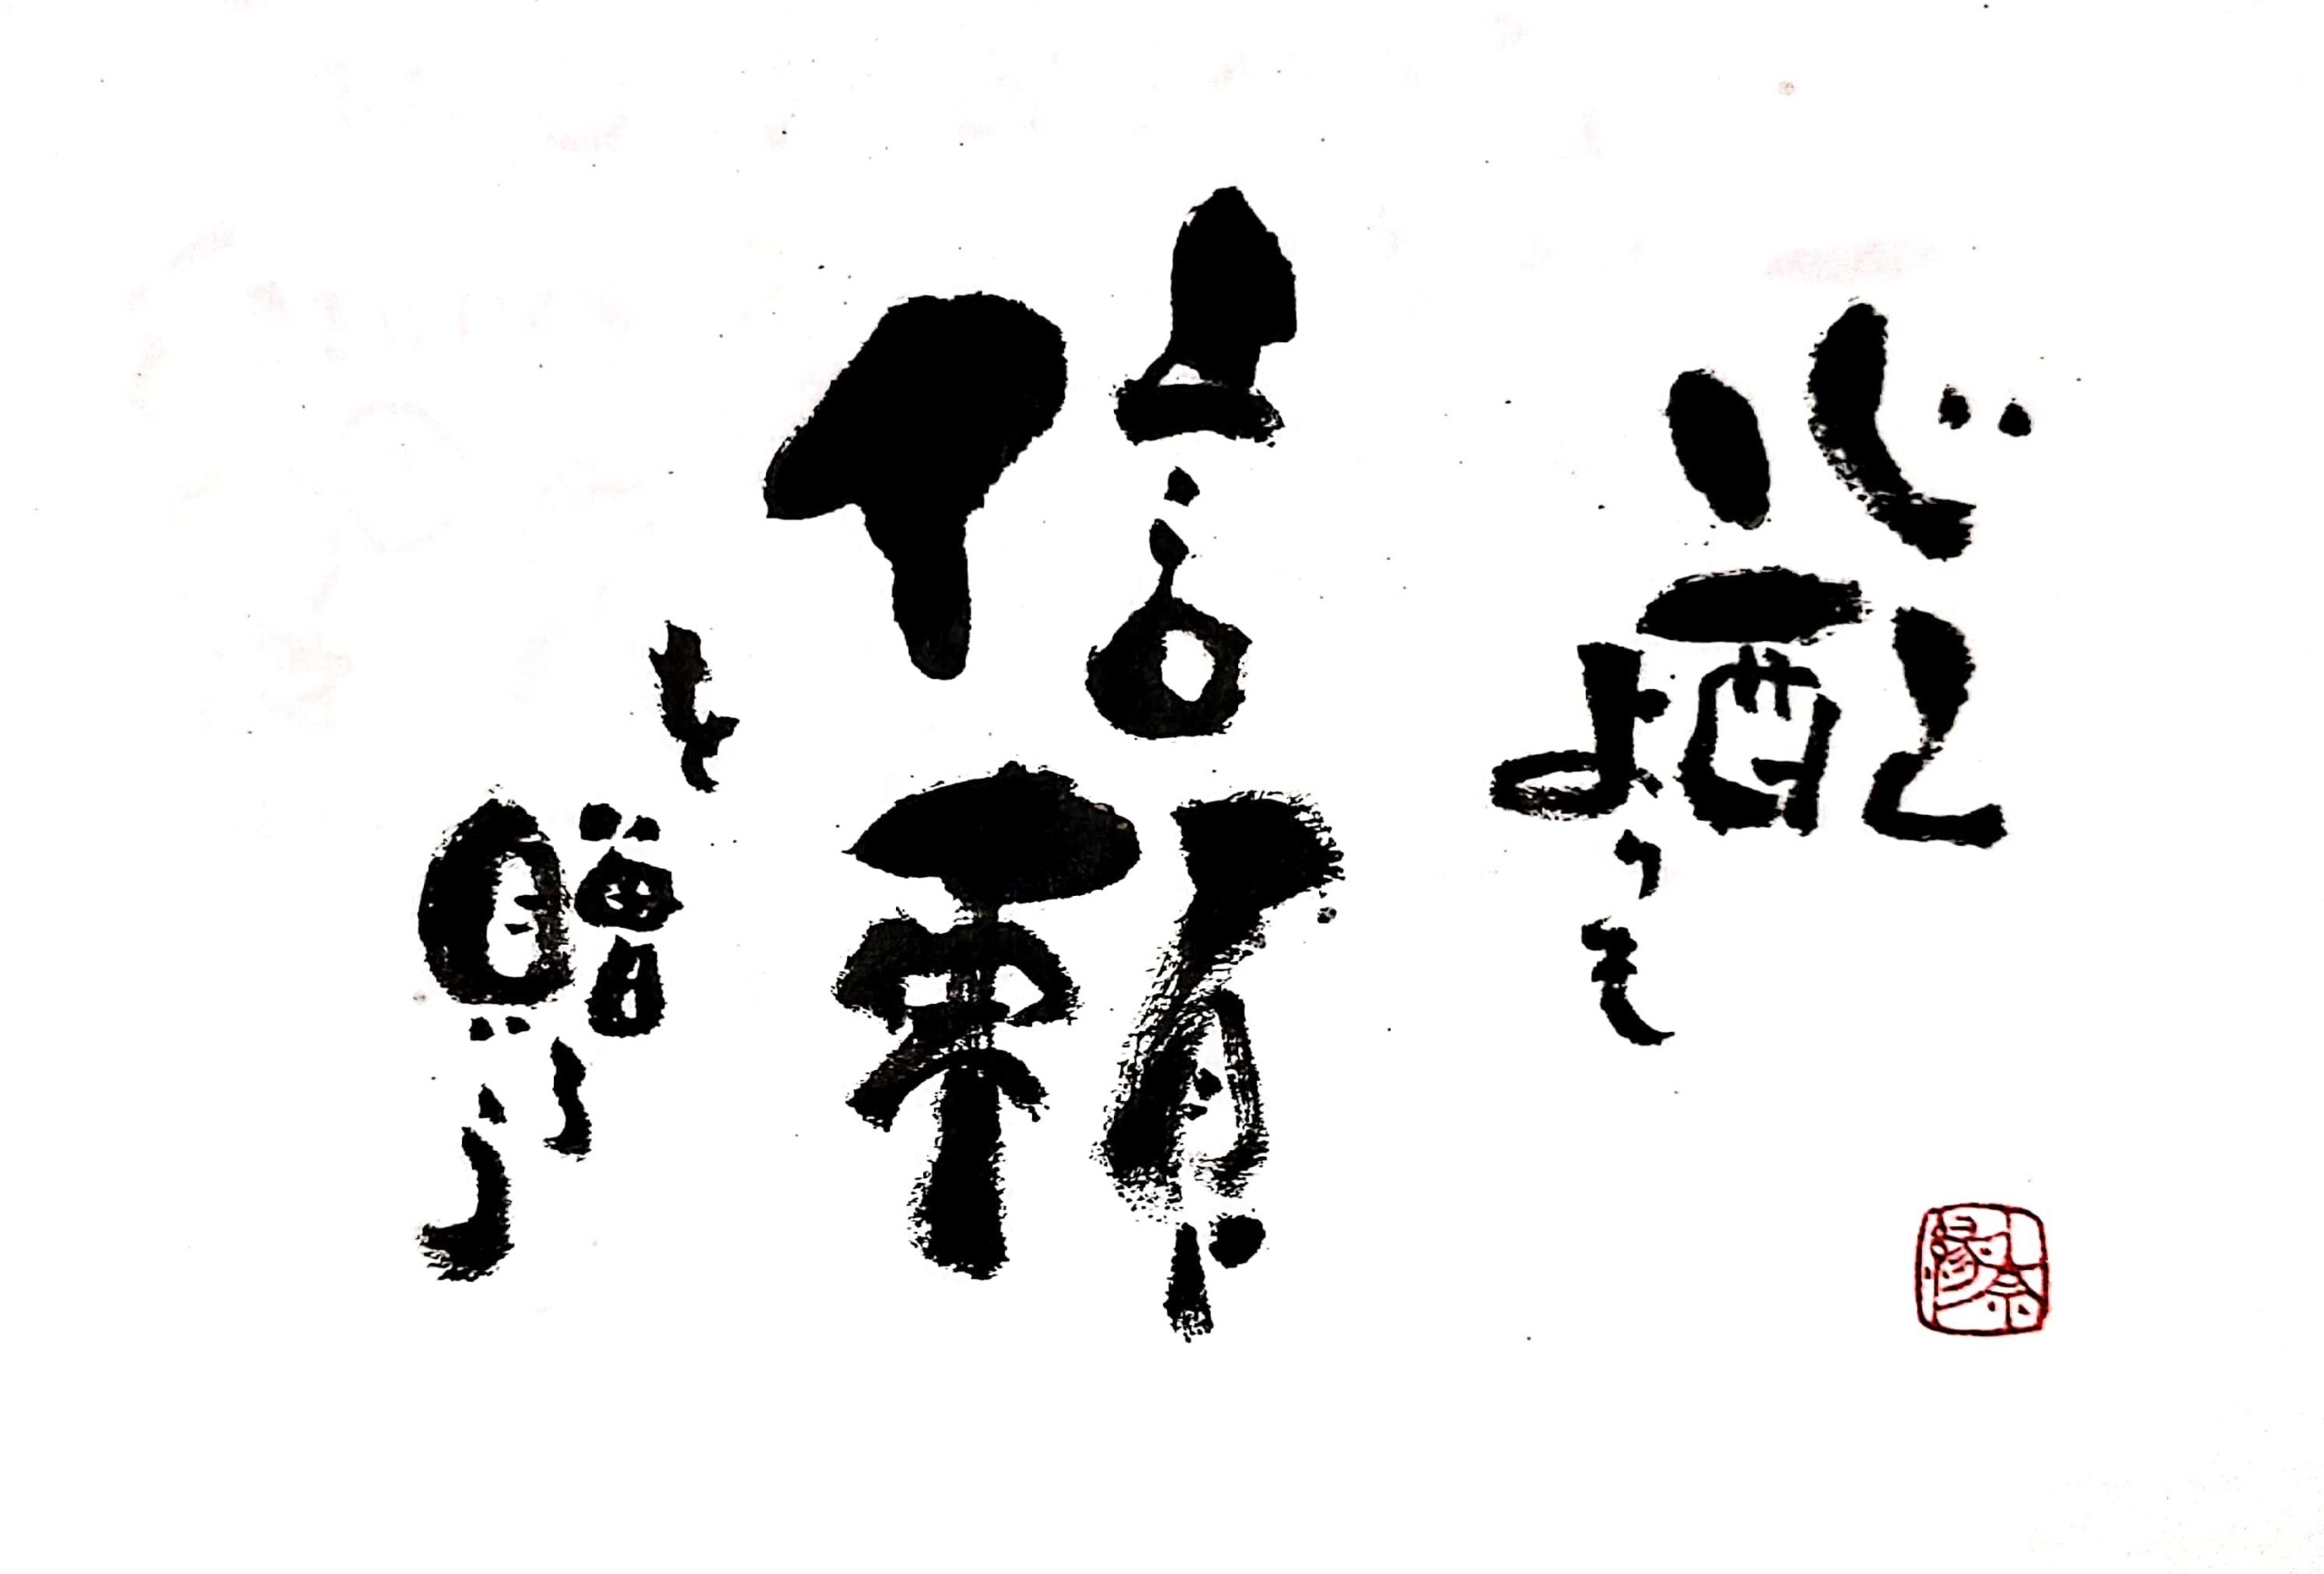 心配
よりも
信頼
を
贈ろう